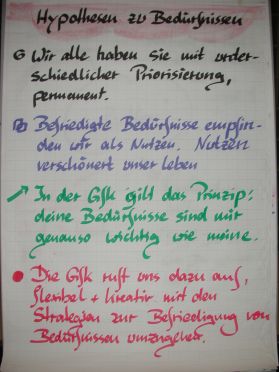 Hypothesen zu Bedürfnissen
Wir alle haben sie mit unter-
schiedlicher Priorisierung,
permanent.
Befriedigte Bedürfnisse empfin-
den wir als Nutzen. Nutzen
verschönert unser Leben
In der Gfk gilt das Prinzip:
deine Bedürfnisse sind mir
genauso wichtig wie meine.
Die Gfk ruft uns dazu auf,
flexibel + kreativ mit den
Strategien zur Befriedigung von
Bedürfnissen umzugehen.